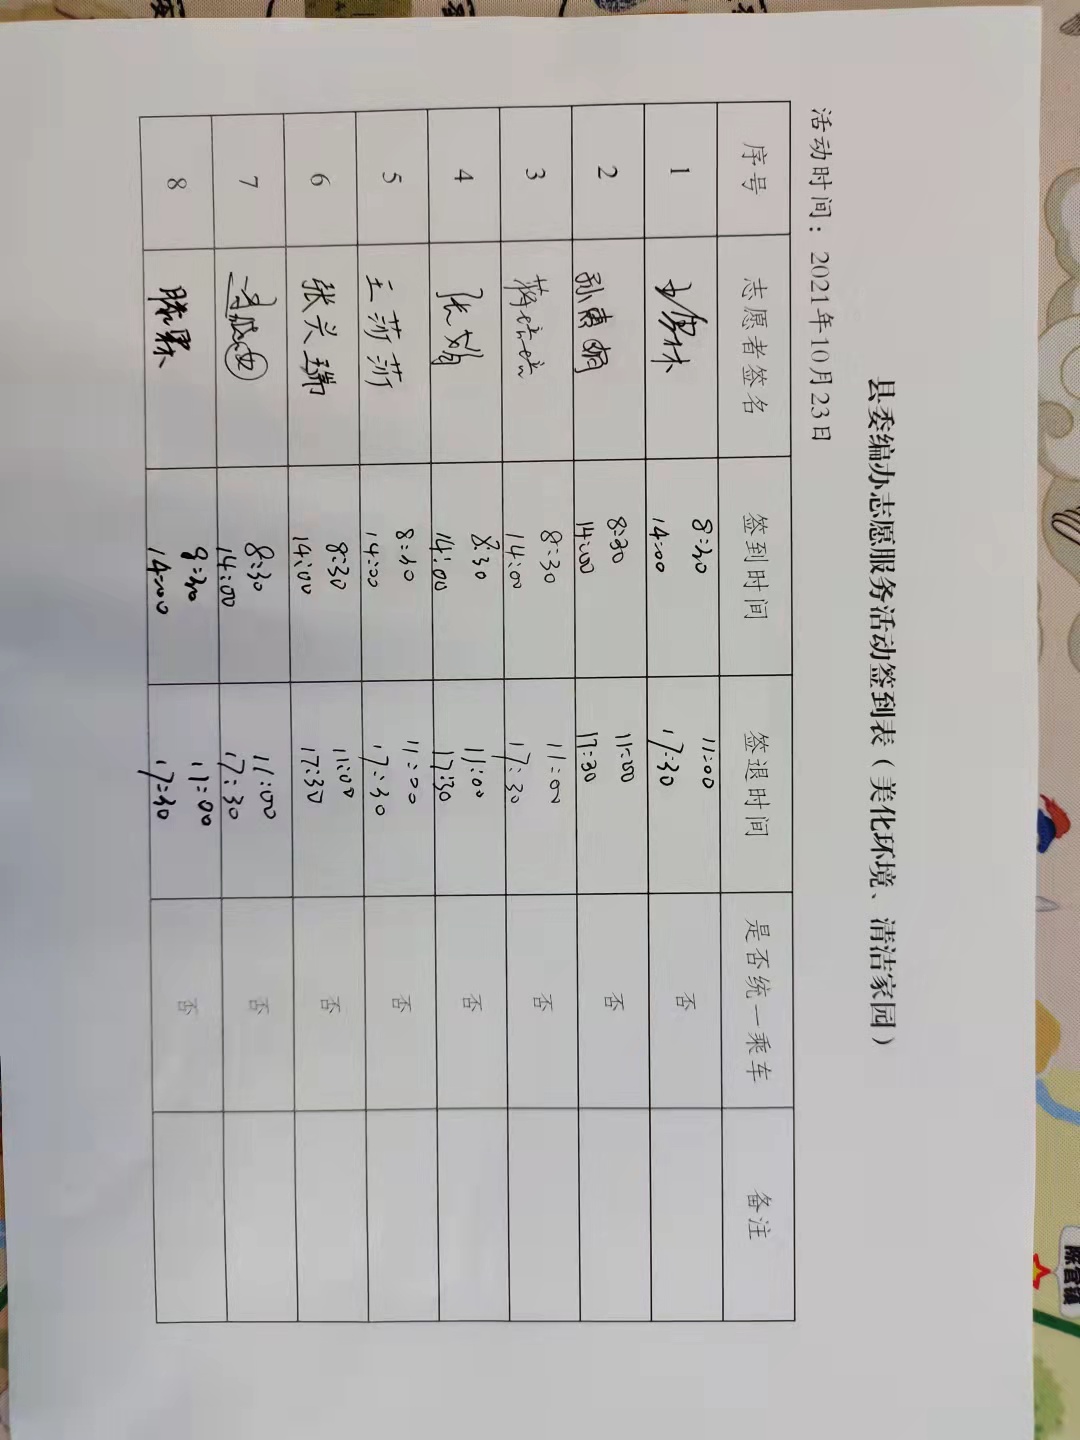 县委编办志愿服务活动签到表（美化环境、清洁家园）
活动时间：2021年10月23日
序号 志愿者签名 签到时间 签退时间 是否统一乘车 备注
1 8:30 11:00 否
14:00 17:30
2 孙 8:30 11:00 否
14:00 17:30
3 蒋培培 8:30 11:00 否
14:00 17:30
4 张娟 8:30 11:00 否
14:00 17:30
5 王莎莎 8:30 11:00 否
14:00 17:30
6 张兴瑞 8:30 11:00 否
14:00 17:30
7 8:30 11:00 否
14:00 17:30
8 滕累 8:30 11:00 否
14:00 17:30
陈官镇